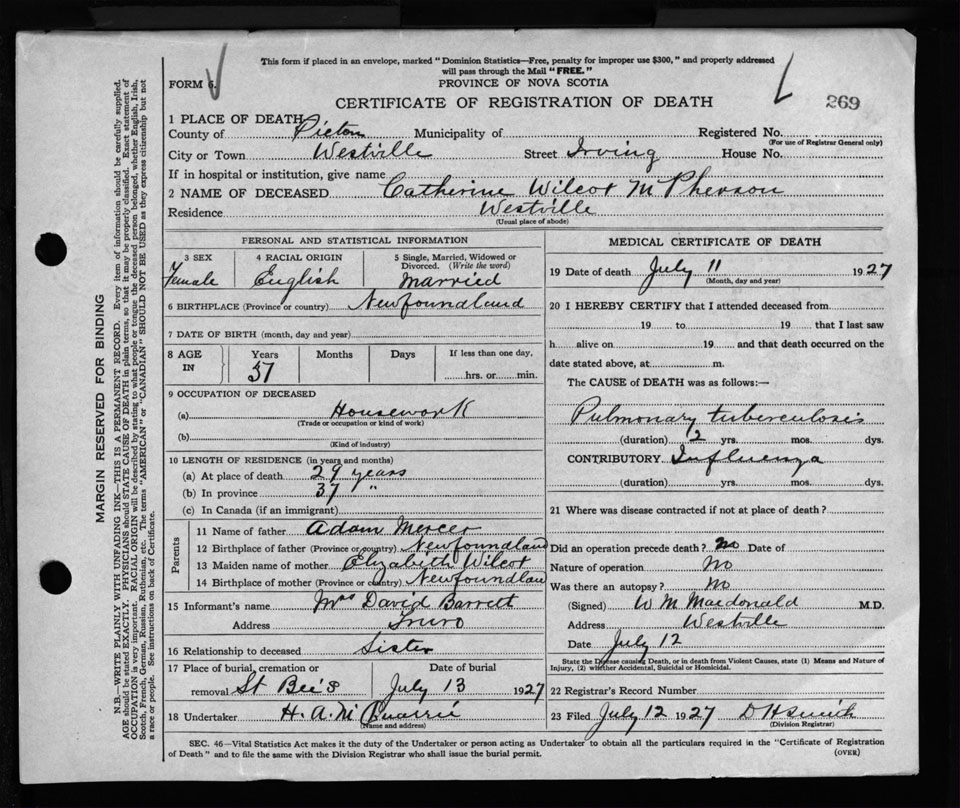 This form if placed in an envelope, marked "Dominion Statistics—Free, penalty for improper use $300," and properly addressed
will pass through the Mail "FREE."
FORM 6.
PROVINCE OF NOVA SCOTIA
CERTIFICATE OF REGISTRATION OF DEATH
269
1 PLACE OF DEATH
County of Pictou Municipality of Registered No.
(For use of Registrar General only)
City or Town Westville Street Irving House No.
If in hospital or institution, give name
2 NAME OF DECEASED Catherine Wilcot McPherson
Residence Westville
(Usual place of abode)
PERSONAL AND STATISTICAL INFORMATION
3 SEX
Female
4 RACIAL ORIGIN
English
5 Single, Married, Widowed or
Divorced. (Write the word)
Married
6 BIRTHPLACE (Province or country) Newfoundland
7 DATE OF BIRTH (month, day and year)
8 AGE IN
Years Months Days If less than one day,
57
hrs. or min.
9 OCCUPATION OF DECEASED
(a) Housework
(Trade or occupation or kind of work)
(b)
(Kind of industry)
10 LENGTH OF RESIDENCE (in years and months)
(a) At place of death 29 years
(b) In province 37 "
(c) In Canada (if an immigrant)
Parents
11 Name of father Adam Mercer
12 Birthplace of father (Province or country) Newfoundland
13 Maiden name of mother Elizabeth Wilcot
14 Birthplace of mother (Province or country) Newfoundlan
15 Informant's name Mrs David Barrett
Address Truro
16 Relationship to deceased Sister
17 Place of burial, cremation or Date of burial
removal St Bee's July 13 1927
18 Undertaker H. A. M
(Name and address)
MEDICAL CERTIFICATE OF DEATH
19 Date of death July 11 1927
(Month, day and year)
20 I HEREBY CERTIFY that I attended deceased from
19 to 19 that I last saw
h alive on 19 and that death occurred on the
date stated above, at m.
The CAUSE of DEATH was as follows:—
Pulmonary tuberculosis
(duration) 2 yrs. mos. dys.
CONTRIBUTORY Influenza
(duration) yrs. mos. dys.
21 Where was disease contracted if not at place of death?
Did an operation precede death? no Date of
Nature of operation no
Was there an autopsy? no
(Signed) W M Macdonald M.D.
Address Westville
Date July 12
State the Disease causing Death, or in death from Violent Causes, state (1) Means and Nature of
Injury, (2) whether Accidental, Suicidal or Homicidal.
22 Registrar's Record Number
23 Filed July 12 1927 D H
(Division Registrar)
SEC. 46—Vital Statistics Act makes it the duty of the Undertaker or person acting as Undertaker to obtain all the particulars required in the "Certificate of Registration
of Death" and to file the same with the Division Registrar who shall issue the burial permit.
(OVER)
MARGIN RESERVED FOR BINDING
N.B.—WRITE PLAINLY WITH UNFADING INK—THIS IS A PERMANENT RECORD. Every item of information should be carefully supplied.
AGE should be stated EXACTLY. PHYSICIANS should STATE CAUSE OF DEATH in plain terms, so that it may be properly classified. Exact statement of
OCCUPATION is very important. RACIAL ORIGIN will be described by stating to what people or tongue the deceased person belonged, whether English, Irish,
Scotch, French, German, Russian, Ruthenian, etc. The terms "AMERICAN" or "CANADIAN" SHOULD NOT BE USED as they express citizenship but not
a race or people. See instructions on back of Certificate.